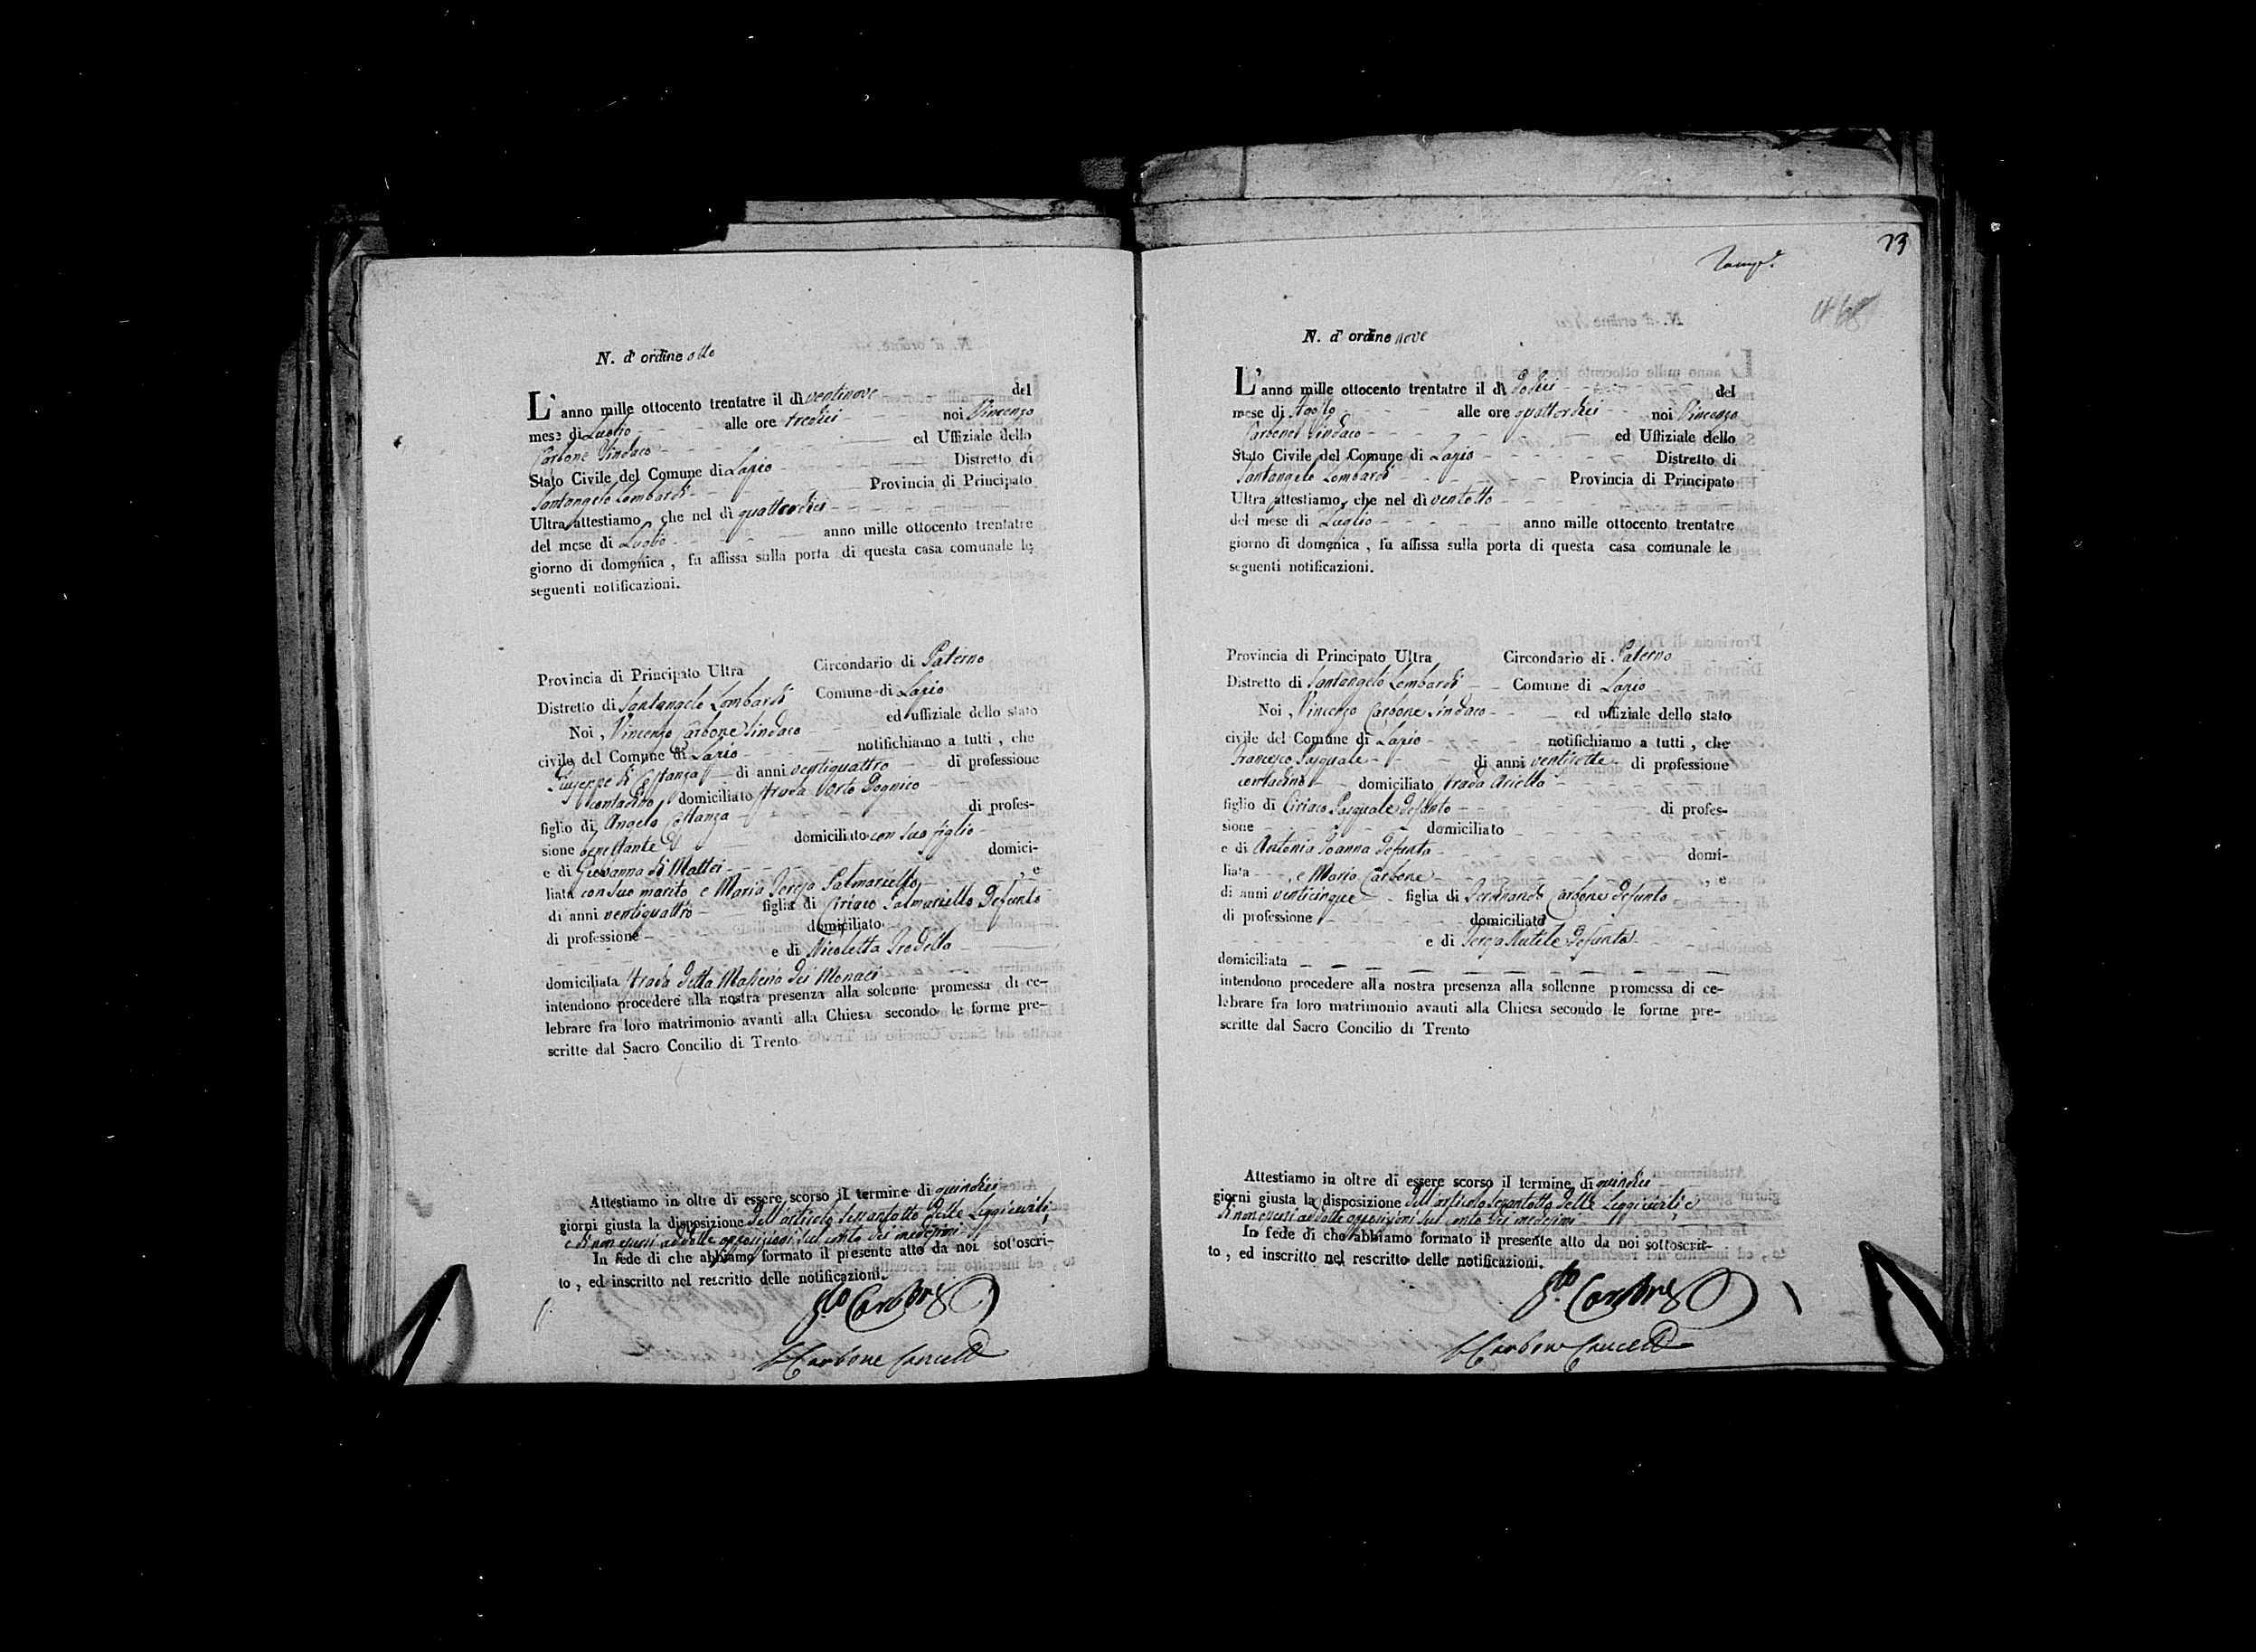 N. d' ordine otto
L' anno mille ottocento trentatre il dì ventinove del
mese di Luglio alle ore tredici noi Vincenzo
Carbone Sindaco ed Uffiziale dello
Stato Civile del Comune di Lapio Distretto di
Santangelo Lombardi Provincia di Principato
Ultra attestiamo, che nel dì quattordici
del mese di Luglio anno mille ottocento trentatre
giorno di domenica, fu affissa sulla porta di questa casa comunale le
seguenti notificazioni.
Provincia di Principato Ultra Circondario di Paterno
Distretto di Santangelo Lombardi Comune di Lapio
Noi, Vincenzo Carbone Sindaco ed uffiziale dello stato
civile del Comune di Lapio notifichiamo a tutti, che
Giuseppe di Costanza di anni ventiquattro di professione
contadino domiciliato strada Orto Dognico
figlio di Angelo Costanza di profes-
sione benestante domiciliato con suo figlio
e di Giovanna di Mattei domici-
liata con suo marito e Maria Teresa Palmariello, e
di anni ventiquattro figlia di Ciriaco Palmariello defunto
di professione domiciliato
e di Nicoletta
domiciliata strada della Masseria dei Monaci
intendono procedere alla nostra presenza alla solenne promessa di ce-
lebrare fra loro matrimonio avanti alla Chiesa secondo le forme pre-
scritte dal Sacro Concilio di Trento
Attestiamo in oltre di essere scorso il termine di quindici
giorni giusta la disposizione dell'articolo sessantotto delle Leggi civili,
e di non essersi addotte opposizioni sul conto dei medesimi
In fede di che abbiamo formato il presente atto da noi sottoscri-
to, ed inscritto nel rescritto delle notificazioni.
Carbone
Carbone Cancell
73
N. d' ordine nove
L' anno mille ottocento trentatre il dì dodici del
mese di Agosto alle ore quattordici noi Vincenzo
Carbone Sindaco ed Uffiziale dello
Stato Civile del Comune di Lapio Distretto di
Santangelo Lombardi Provincia di Principato
Ultra attestiamo, che nel dì ventotto
del mese di Luglio anno mille ottocento trentatre
giorno di domenica, fu affissa sulla porta di questa casa comunale le
seguenti notificazioni.
Provincia di Principato Ultra Circondario di Paterno
Distretto di Santangelo Lombardi Comune di Lapio
Noi, Vincenzo Carbone Sindaco ed uffiziale dello stato
civile del Comune di Lapio notifichiamo a tutti, che
Francesco Pasquale di anni ventisette di professione
contadino domiciliato strada Ariella
figlio di Ciriaco Pasquale defunto di profes-
sione domiciliato
e di Antonia Joanna defunta domi-
liata, e Maria Carbone, e
di anni venticinque figlia di Ferdinando Carbone defunto
di professione domiciliato
e di Teresa defunta
domiciliata
intendono procedere alla nostra presenza alla sollenne promessa di ce-
lebrare fra loro matrimonio avanti alla Chiesa secondo le forme pre-
scritte dal Sacro Concilio di Trento
Attestiamo in oltre di essere scorso il termine di quindici
giorni giusta la disposizione dell'articolo sessantotto delle Leggi civili, e
di non essersi addotte opposizioni sul conto dei medesimi
In fede di che abbiamo formato il presente atto da noi sottoscrit-
to, ed inscritto nel rescritto delle notificazioni.
Carbone
Carbone Cancell